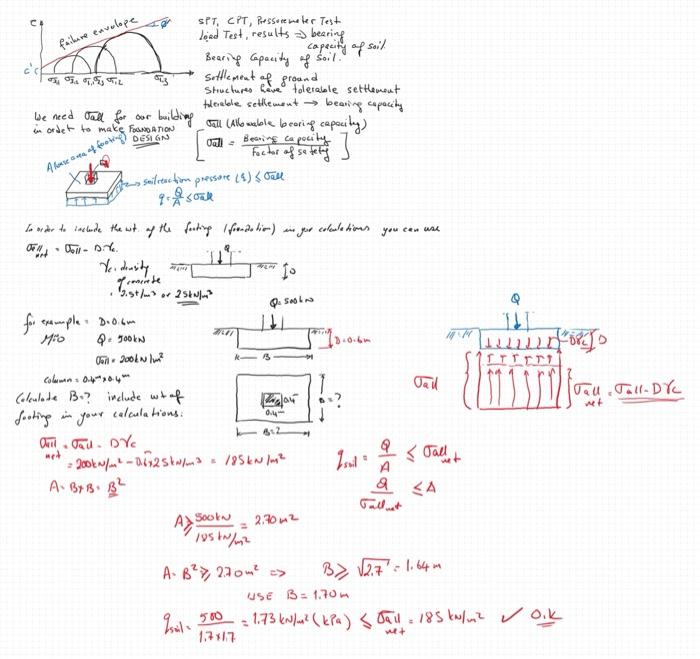 SPT, CPT, Pressuremeter Test
Load Test, results ⇒ bearing
capacity of soil
Bearing Capacity of Soil.
Settlement of ground
Structures have tolerable settlement
tolerable settlement → bearing capacity
failure envelope
c'
We need σall for our building
in order to make FOUNDATION
DESIGN
σall (Allowable bearing capacity)
[σall = Bearing Capacity / Factor of safety]
A (base area of footing)
Q
soil reaction pressure (q) ≤ σall
q = Q/A ≤ σall
In order to include the wt. of the footing (foundation) in your calculations you can use
σall net = σall - D.γc
γc: density
of concrete
2.5t/m³ or 25kN/m³
Q
D
for example: D=0.6m
Q= 500kN
σall = 200kN/m²
column = 0.4m x 0.4m
Calculate B=? include wt of
footing in your calculations:
Q=500kN
D=0.6m
B
0.4m
0.4m
B=?
B=?
Q
Dγc
D
σall
σall net = σall - Dγc
σall net = σall - Dγc
= 200kN/m² - 0.6x25kN/m³ = 185kN/m²
A = B x B = B²
qsoil = Q/A ≤ σall net
Q/σall net ≤ A
A ≥ 500kN / 185kN/m² = 2.70m²
A = B² ≥ 2.70m² ⇒ B ≥ √2.7 = 1.64m
USE B = 1.70m
qsoil = 500 / 1.7x1.7 = 173 kN/m² (kPa) ≤ σall net = 185 kN/m² ✓ O.K